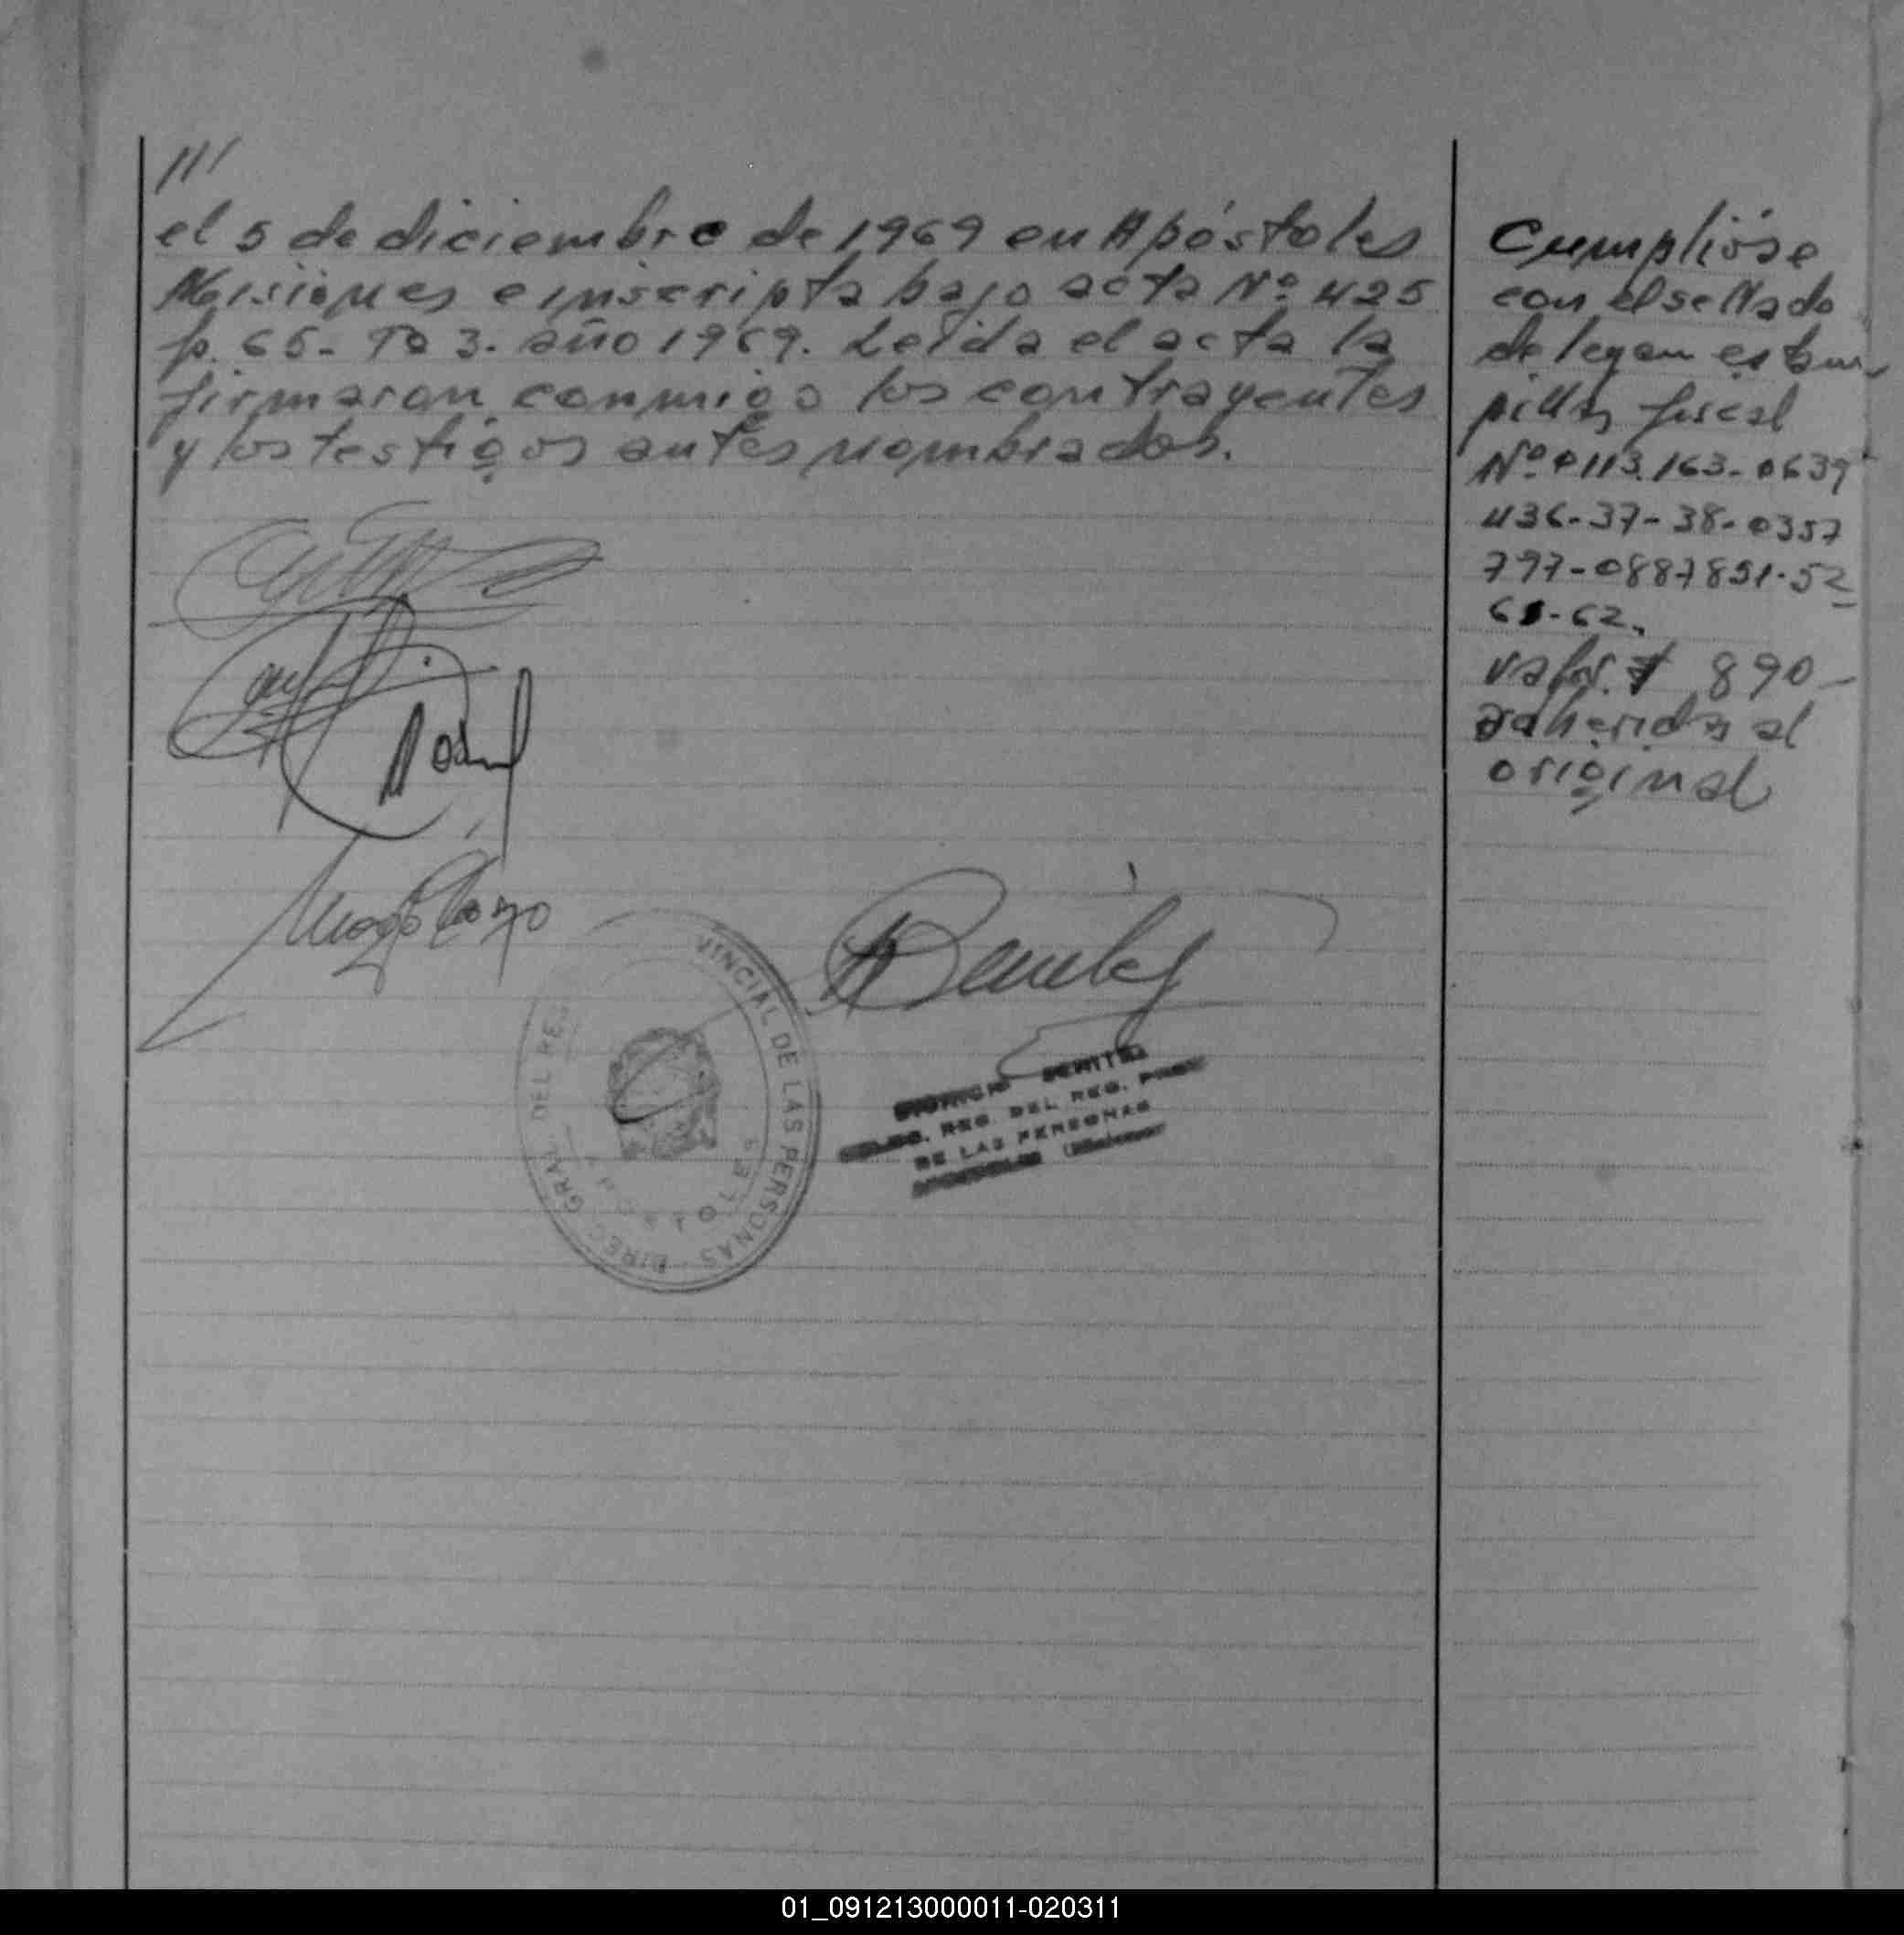 ///
el 5 de diciembre de 1969 en Apóstoles
Misiones e inscripta bajo acta Nº 425
fº. 65- Tº 3. año 1969. Leída el acta la
firmaron conmigo los contrayentes
y los testigos antes nombrados.
VINCIAL DE LAS PERSONAS - DIREC. GRAL DEL RE
APOSTOLES
BENITEZ
REG. DEL REG. PROV
DE LAS PERSONAS
Cumplióse
con el sellado
de ley en estam
pillas fiscal
Nº 0113.163-0639
436-37-38-0357
797-0887851-52
61-62.
valor $ 890-
adheridas al
original
01_091213000011-020311